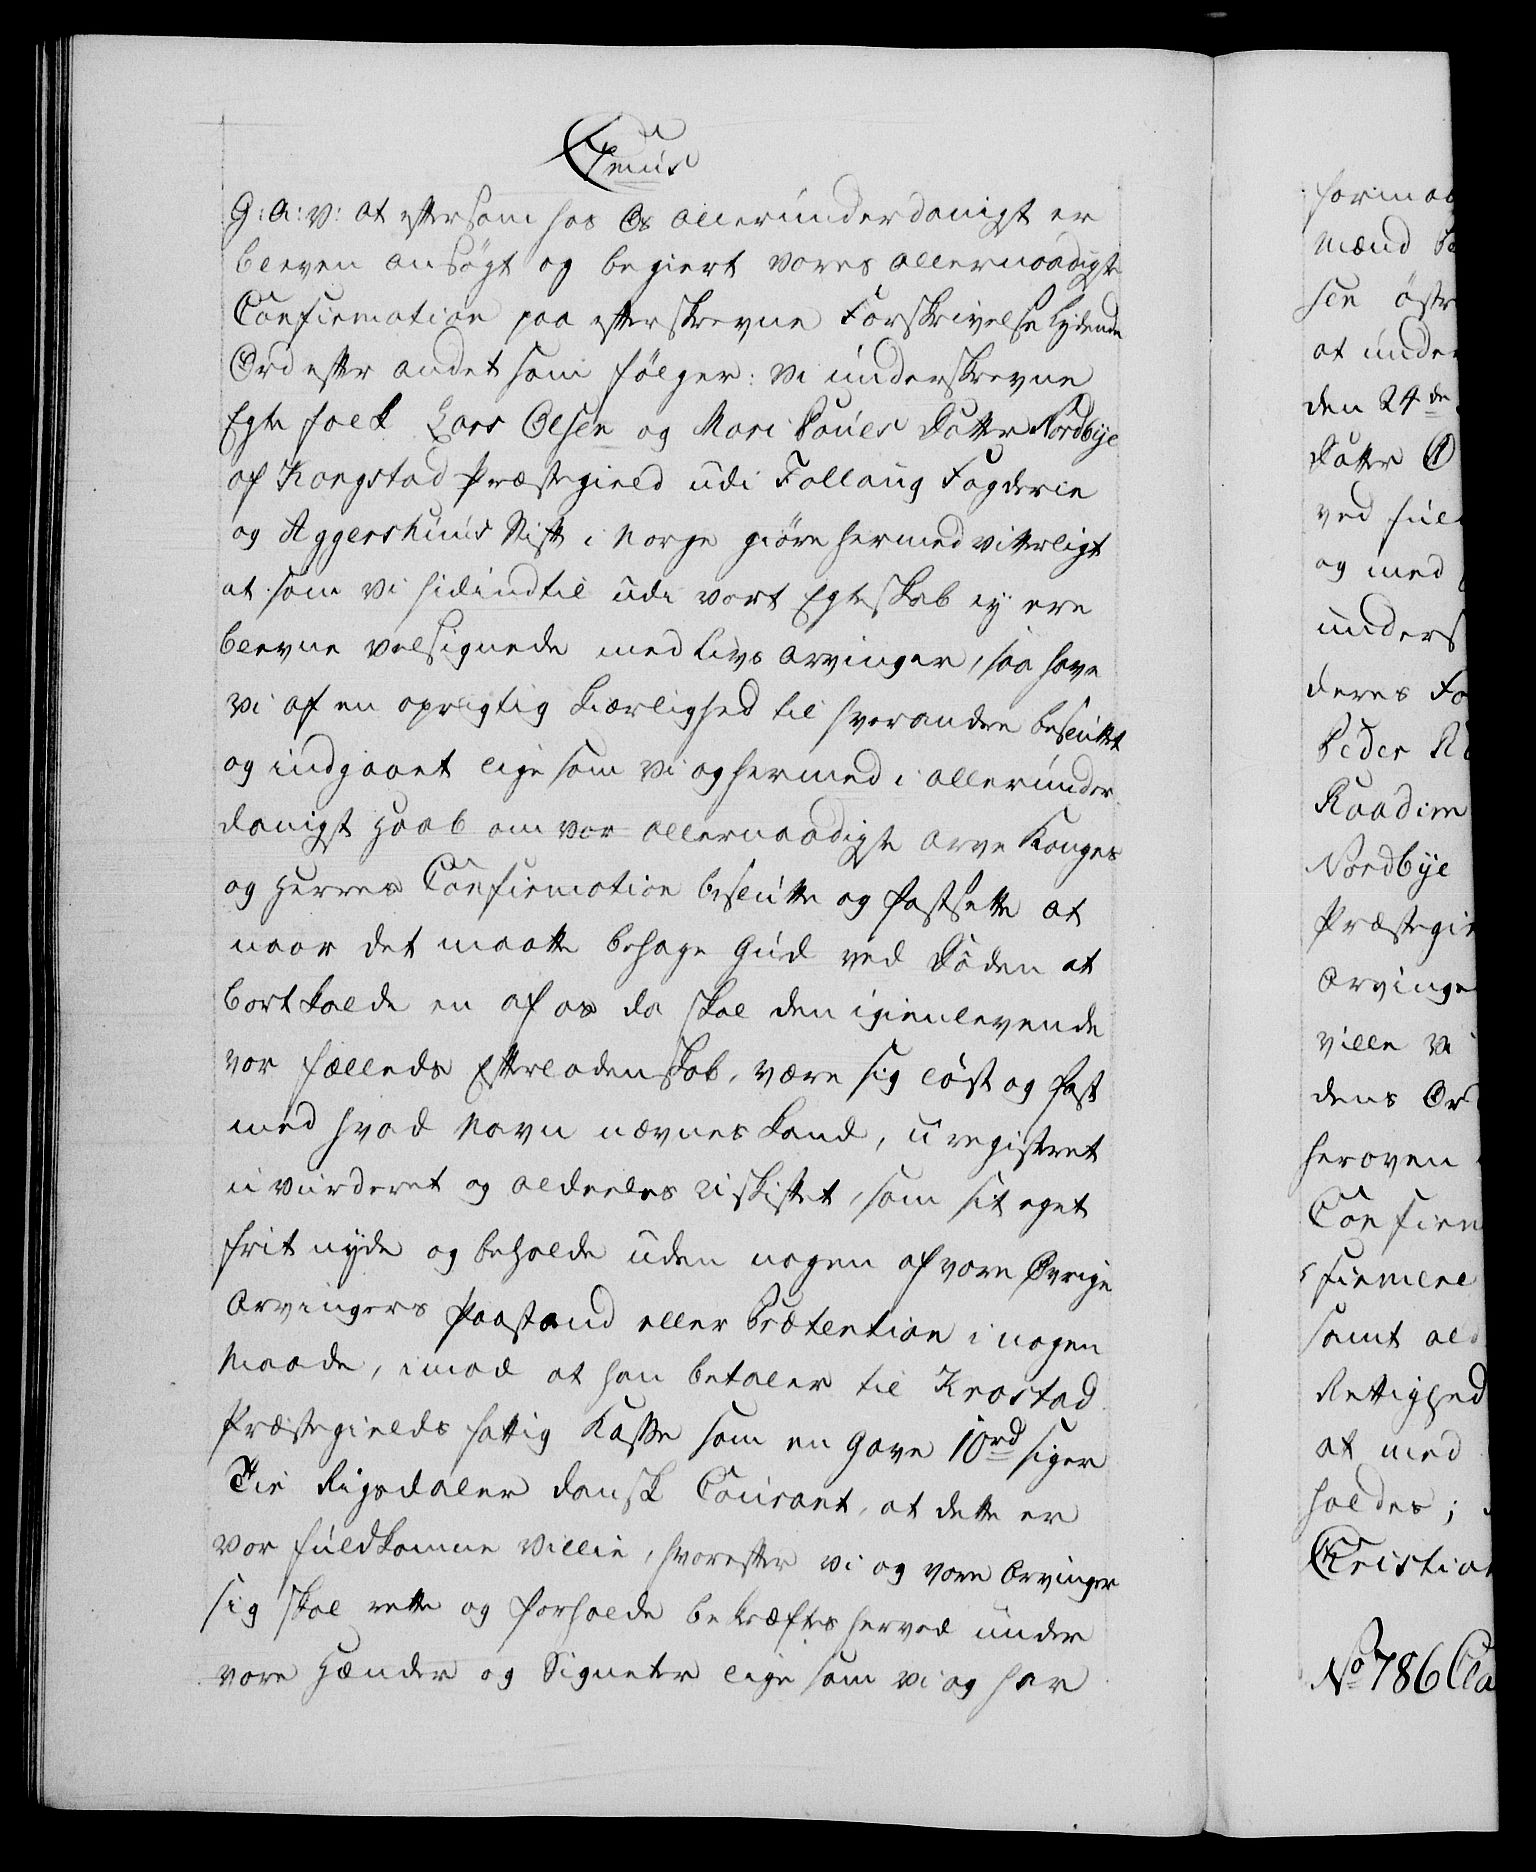 G: A: V: at eftersom hos Os allerunderdanigst er
bleven ansøgt og begiert vores allernaadigste
Confirmation paa efterskrevne Forskrivelse lydende
Ord efter andet som følger: Vi underskrevne
Egte folk Lars Olsen og Mari Pouls Datter Nordbye
af Krogstad Præstegield udi Follaug Fogderie
og Aggershuus Stift i Norge giøre hermed vitterligt
at som vi hidindtil udi vort Egteskab ej ere
blevne velsignede med Livs Arvinger, saa have
vi af en oprigtig Kiærlighed til hverandre besluttet
og indgaaet ligesom vi og hermed i allerunder
danigst Haab om vor allernaadigste Arve Konges
og Herres Confirmation beslutte og fastsette at
naar det maatte behage Gud ved Døden at
bortkalde en af os da skal den igienlevende
vor fælleds Efterladenskab, være sig løst og fast
med hvad Navn nævnes kand, u registret
u vurderet og aldeeles u skiftet, som sit eget
frit nyde og beholde uden nogen af vore Øvrige
Arvingers Paastand eller Prætention i nogen
Maade, imod at han betaler til Krostad
Præstegields fattig Kasse som en Gave 10rd siger
Tie Rigsdaler dansk Courant, at dette er
vor fuldkomne Villie, hvorefter vi og vore Arvinger
sig skal rette og forholde bekræftes herved under
vore Hænder og Signeter ligesom vi og har
formaa
Mænd
sen østr
at under
den 24de
Datter
ved fuld
og med
unders
deres Fo
Peder
Raadim
Nordbye
Præstegie
Arvinge
ville vi
dens Or
heroven
Confirm
firmere
samt al
Rettighed
at med
holdes;
Christian
No 786 Cla